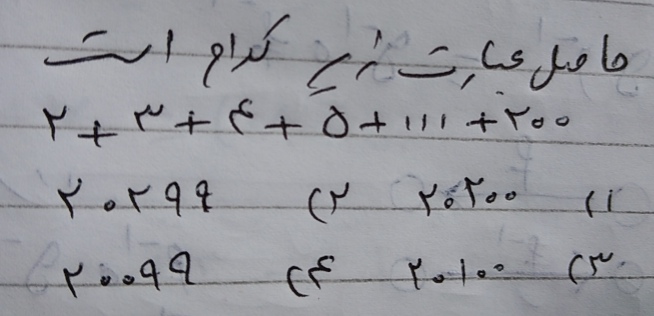 حاصل عبارت زیر کدام است
۲+۳+۴+۵+۱۱۱+۲۰۰
۱) ۲۰۲۰۰ ۲) ۲۰۲۹۹
۳) ۲۰۱۰۰ ۴) ۲۰۰۹۹